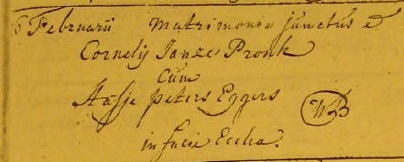 6 Februarij Matrimonio junctus e
Cornelij Janze Pronk
Cum
Aafje peters Eggers
WB
in facie Eccliæ.